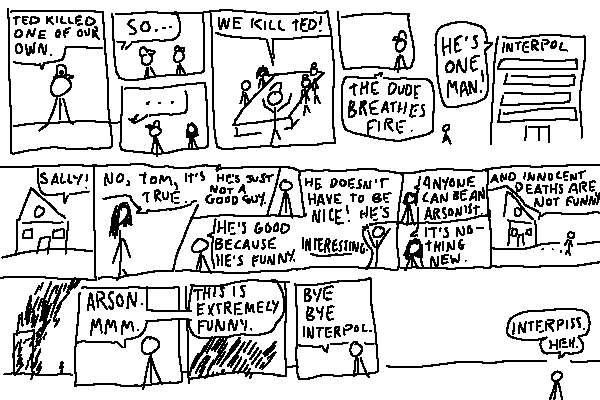 TED KILLED
ONE OF OUR
OWN.
SO...
...
WE KILL TED!
THE DUDE
BREATHES
FIRE.
HE'S
ONE
MAN!
INTERPOL
SALLY!
NO, TOM, IT'S
TRUE.
HE'S JUST
NOT A
GOOD GUY.
HE'S GOOD
BECAUSE
HE'S FUNNY.
HE DOESN'T
HAVE TO BE
NICE! HE'S
INTERESTING
ANYONE
CAN BE AN
ARSONIST.
IT'S NO-
THING
NEW.
AND INNOCENT
DEATHS ARE
NOT FUNNY
ARSON.
MMM.
THIS IS
EXTREMELY
FUNNY.
BYE
BYE
INTERPOL.
INTERPISS.
HEH.